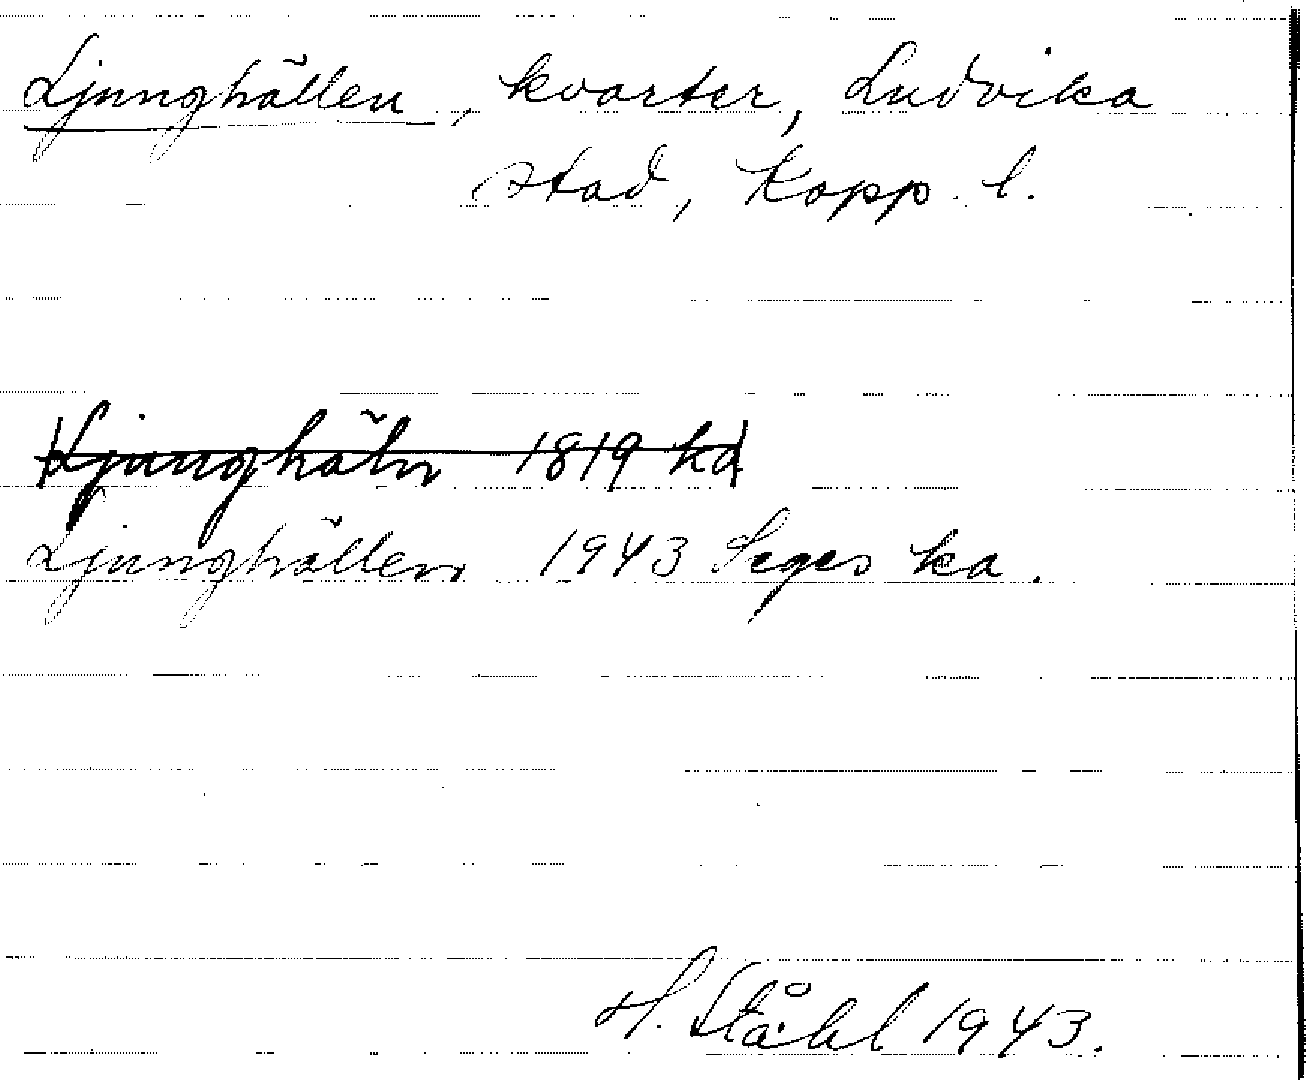 Ljunghällen, kvarter, Ludvika
stad, Kopp. l.
Ljunghäln 1819 ka
Ljunghällen 1943 Seges ka.
H. Ståhl 1943.